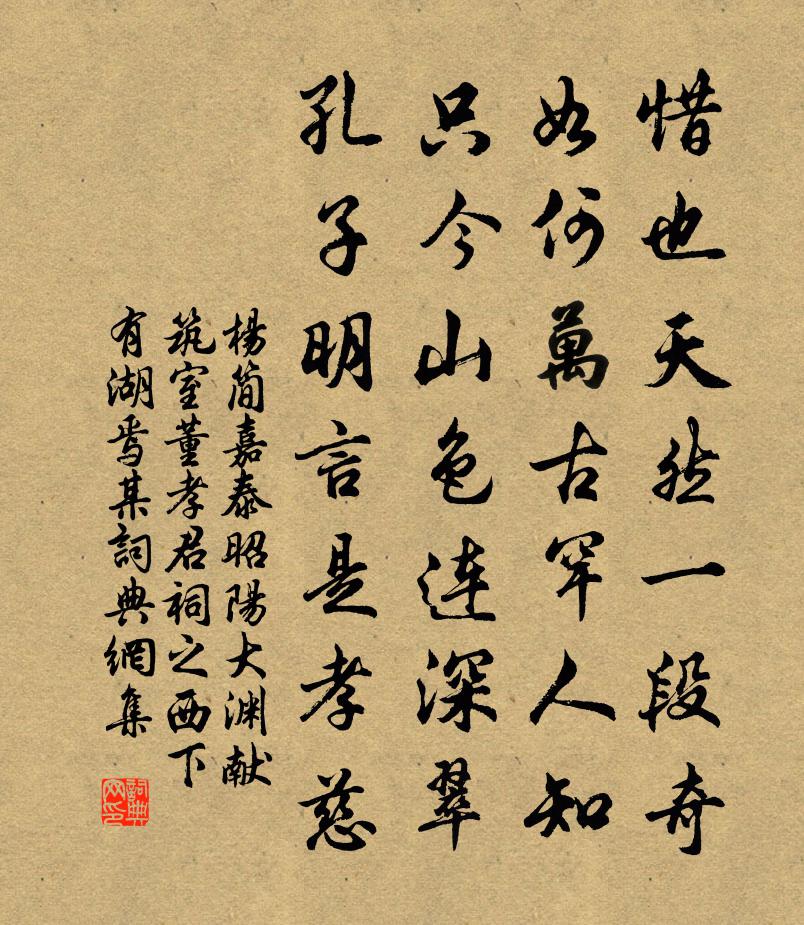 惜也天然一段奇
如何萬古罕人知
只今山色連深翠
孔子明言是孝慈
楊簡嘉泰昭陽大渊献
筑室董孝君祠之西下
有湖焉其詞典網集
詞典网印